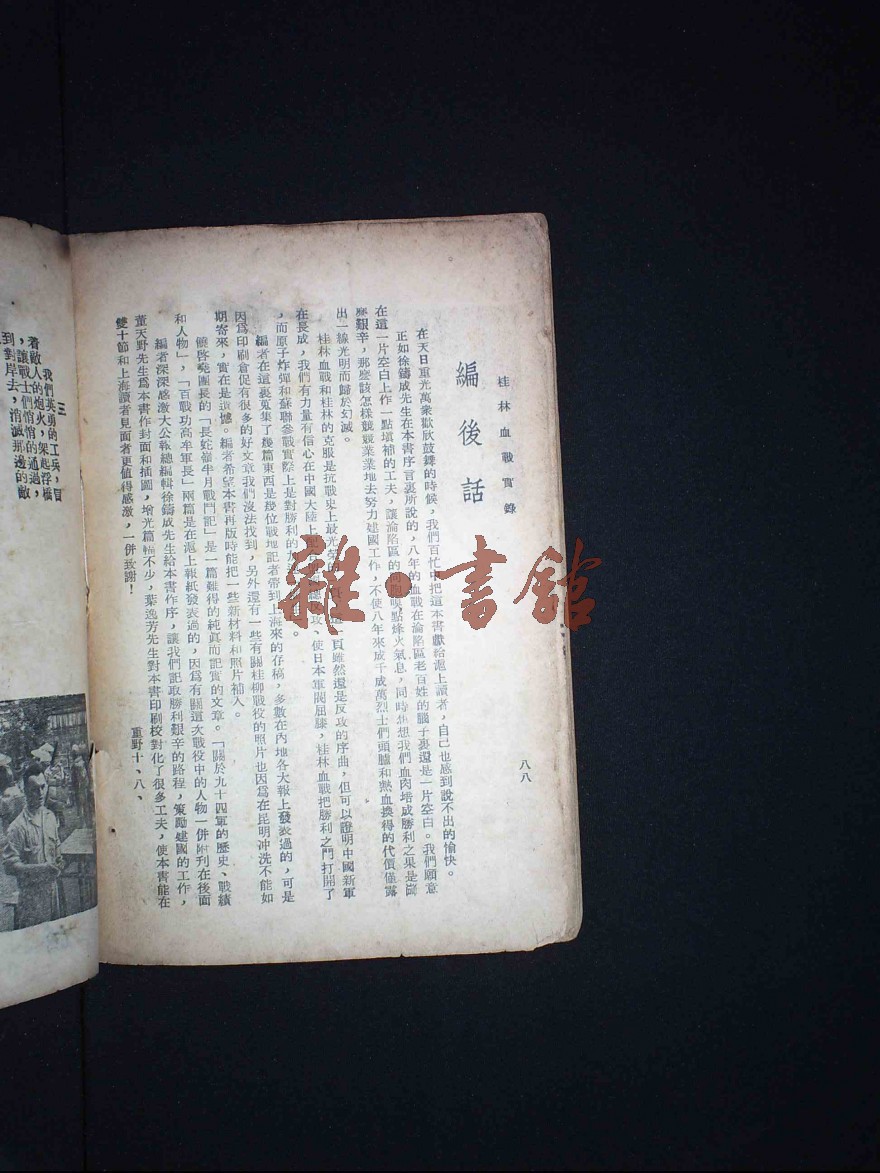 桂林血戰實錄
八八
編後話
在天日重光萬衆歡欣鼓舞的時候，我們百忙中把這本書獻給滬上讀者，自己也感到說不出的愉快。
正如徐鑄成先生在本書序言裏所說的，八年的血戰在淪陷區老百姓的腦子裏還是一片空白。我們願意
在這一片空白上作一點填補的工夫，讓淪陷區的同胞嗅點烽火氣息，同時想想我們血肉塔成勝利之果是
艱辛，那麼該怎樣競競業業地去努力建國工作，不使八年來成千成萬烈士們頭臚和熱血換得的代價僅露
出一線光明而歸於幻滅。
桂林血戰和桂林的克服是抗戰史上最光榮的一頁雖然還是反攻的序曲，但可以證明中國新軍
在長成，我們有力量有信心在中國大陸上攻、使日本軍閥屈膝，桂林血戰把勝利之門打開了
，而原子炸彈和蘇聯參戰實際上是對勝利的
編者在這裏蒐集了幾篇東西是幾位戰地記者帶到上海來的存稿，多數在內地各大報上發表過的，可是
因爲印刷倉促有很多的好文章我們沒法找到，另外還有一些有關桂柳戰役的照片也因爲在昆明冲洗不能如
期寄來，實在是遺憾。編者希望本書再版時能把一些新材料和照片補入。
饒啓堯團長的「長蛇嶺半月戰鬥記」是一篇難得的純眞而記實的文章。「關於九十四軍的歷史、戰績
和人物」，「百戰功高牟軍長」兩篇是在滬上報紙發表過的，因爲有關這次大戰役中的人物一併附刋在後面
編者深深感激大公報總編輯徐鑄成先生給本書作序，讓我們記取勝利艱辛的路程，策勵建國的工作，
董天野先生爲本書作封面和插圖，增光篇幅不少，葉逸芳先生對本書印刷校對化了很多工夫，使本書能在
雙十節和上海讀者見面者更值得感激，一併致謝！
重野十、八、
三
我們英勇的工兵，冒
着敵人的炮火，架起浮橋
，讓戰士們悄悄的通過，
到對岸去，消滅那邊的敵
雜·書館